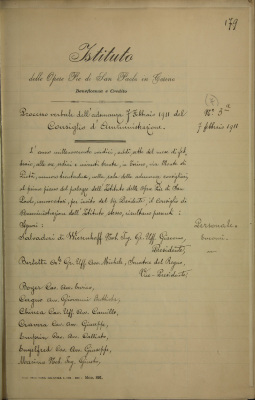 179
Istituto
delle Opere Pie di San Paolo in Torino
Beneficenza e Credito
Processo verbale dell'adunanza 7 Febbraio 1911 del
Consiglio d'Amministrazione.
N° 3
7 febbraio 1911
L'anno millenovecento undici, addì sette del mese di feb-
braio, alle ore sedici e minuti trenta, in Torino, via Monte di
Pietà, numero trentadue, nella sala delle adunanze consigliari,
al primo piano del palazzo dell'Istituto delle Opere Pie di San
Paolo, convocatosi, per invito del Sig. Presidente, il Consiglio di
Amministrazione dell'Istituto stesso, risultano presenti i
Signori:
Personale
Salvadori di Wiesenhoff Nob. Ing. Gr. Uff. Giacomo,
Presidente;
Barberis Gr. Uff. Avv. Michele, Senatore del Regno,
Vice-Presidente;
Boyer Cav. Avv. Enrico,
Avv. Giovanni Battista,
Chinea Cav. Uff. Avv. Camillo,
Cav. Avv. Giuseppe,
Cav. Avv.
Engelfred Cav. Avv. Giuseppe,
Nob. Ing.